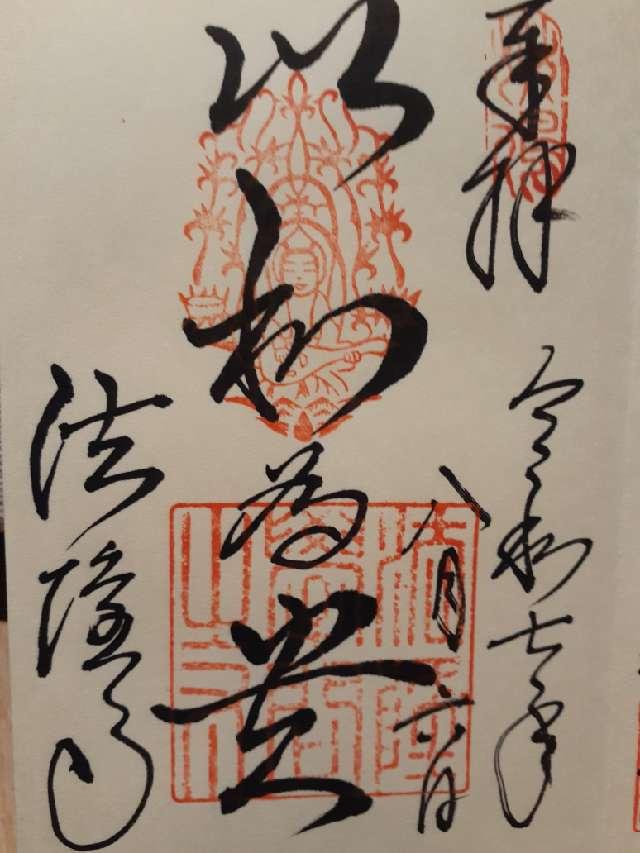 奉拝
令和七年
八月六日
以和為貴
法隆寺